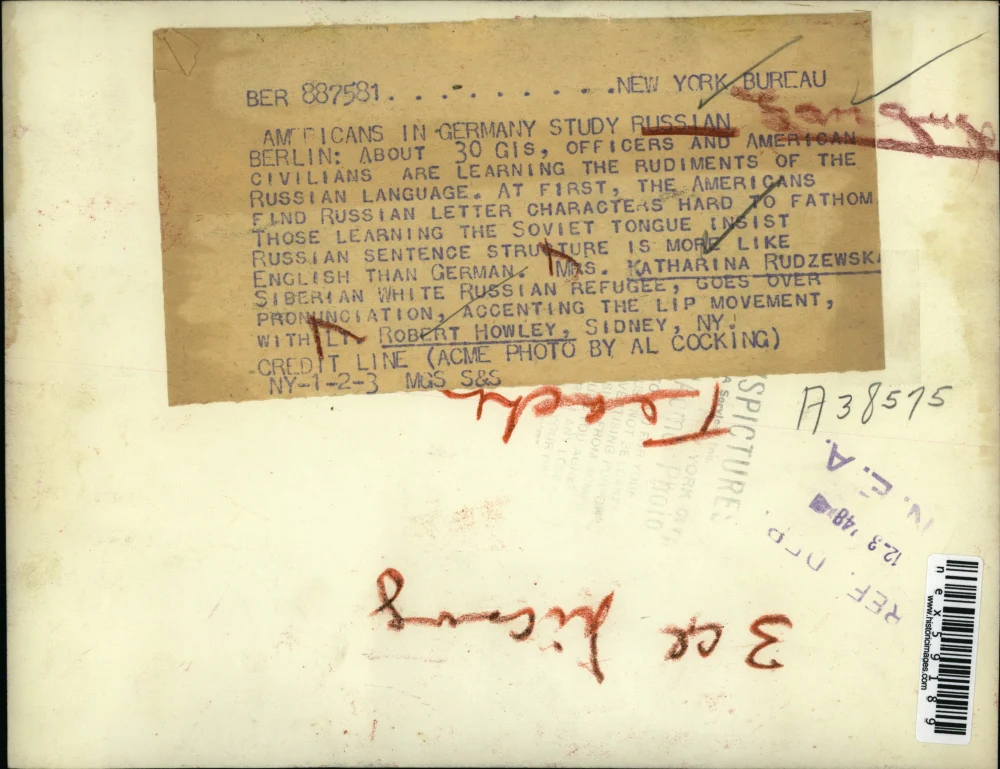 BER 887581. . . . . . . . . . .NEW YORK BUREAU
Language
AMERICANS IN GERMANY STUDY RUSSIAN
BERLIN: ABOUT 30 GIS, OFFICERS AND AMERICAN
CIVILIANS ARE LEARNING THE RUDIMENTS OF THE
RUSSIAN LANGUAGE. AT FIRST, THE AMERICANS
FIND RUSSIAN LETTER CHARACTERS HARD TO FATHOM
THOSE LEARNING THE SOVIET TONGUE INSIST
RUSSIAN SENTENCE STRUCTURE IS MORE LIKE
ENGLISH THAN GERMAN. MRS. KATHARINA RUDZEWSKA
SIBERIAN WHITE RUSSIAN REFUGEE, GOES OVER
PRONUNCIATION, ACCENTING THE LIP MOVEMENT,
WITH LT. ROBERT HOWLEY, SIDNEY, NY.
CREDIT LINE (ACME PHOTO BY AL COCKING)
NY-1-2-3 MGS S&S
Teach
A38575
N. E. A.
12-3 '48
REF.
3
nex59189
www.historicimages.com